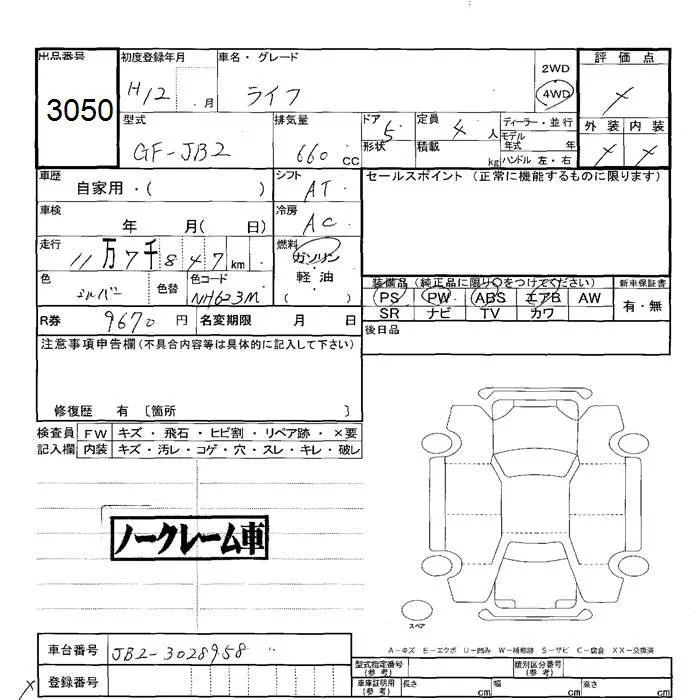 出品番号 初度登録年月 車名・グレード 2WD 評価点
3050 H12 月 ライフ 4WD ×
型式 排気量 ドア 定員 ディーラー・並行 外装 内装
GF-JB2 660 CC 5 4 人 モデル年式 年
形状 積載 kg ハンドル 左・右 × ×
車歴 自家用・( ) シフト AT セールスポイント (正常に機能するものに限ります)
車検 年 月( 日) 冷房 AC
走行 11万7千847 km 燃料 ガソリン
軽・油
色 シルバー 色替 色コード NH623M ( )
装備品(純正品に限り○をつけてください) 新車保証書
PS PW ABS エアB AW 有・無
SR ナビ TV カワ
R券 9670 円 名変期限 月 日 後日品
注意事項申告欄(不具合内容等は具体的に記入して下さい)
修復歴 有 〔箇所 〕
検査員 FW キズ・飛石・ヒビ割・リペア跡・×要
記入欄 内装 キズ・汚レ・コゲ・穴・スレ・キレ・破レ
ノークレーム車
スペア
A-キズ E-エクボ U-凹み W-補修跡 S-サビ C-腐食 XX-交換済
車台番号 JB2-3028958 型式指定番号(参考) 類別区分番号(参考)
× 登録番号 車庫証明用(参考) 長さ cm 幅 cm 高さ cm